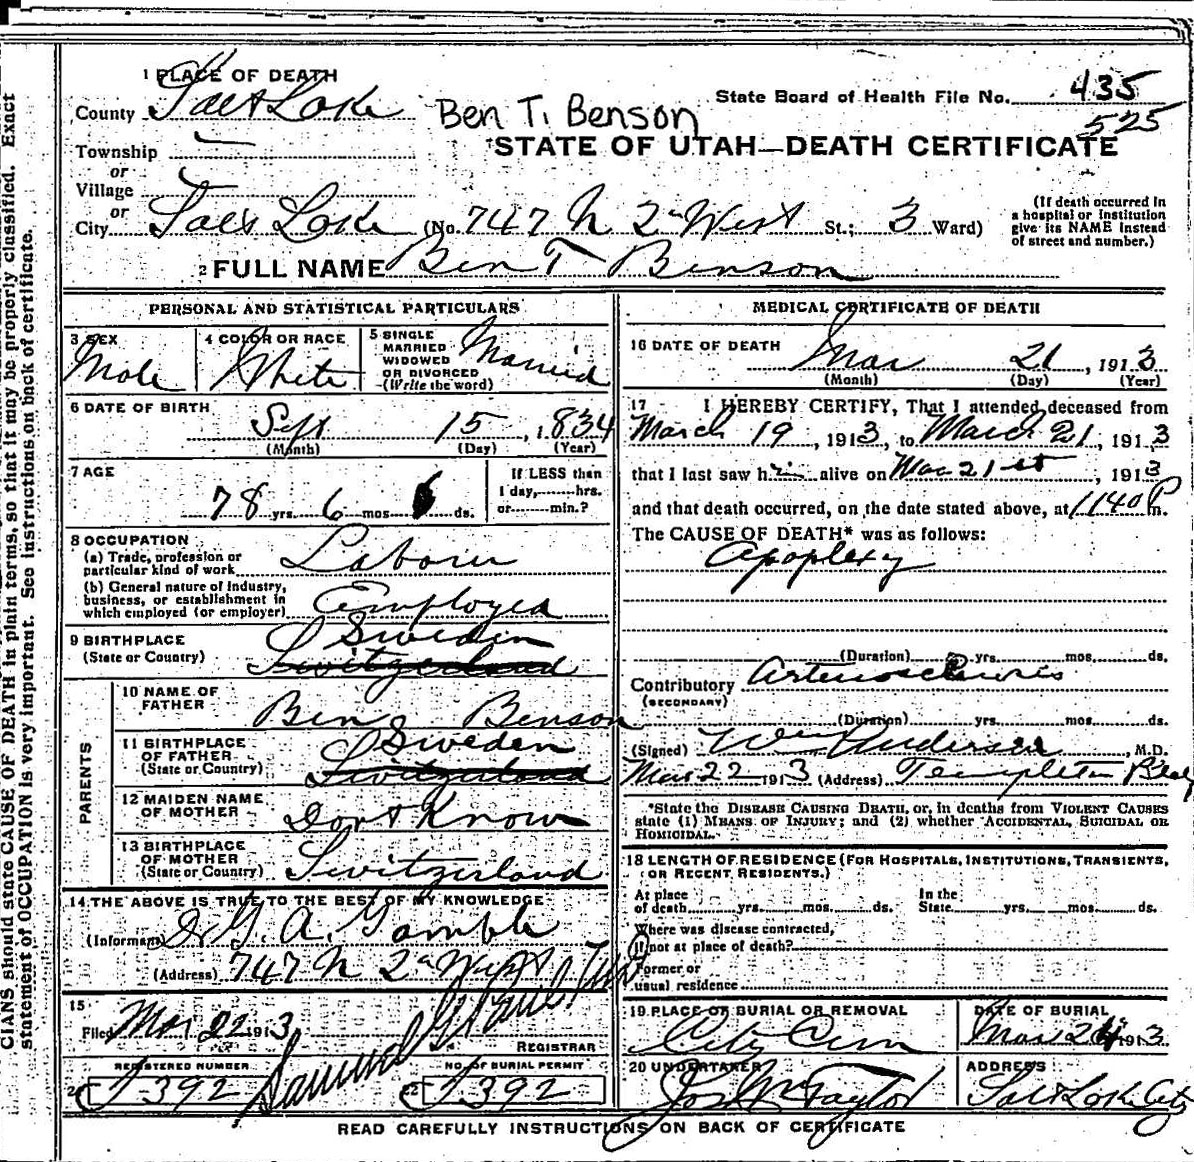 CIANS should state CAUSE OF DEATH in plain terms, so that it may be properly classified. Exact
statement of OCCUPATION is very important. See instructions on back of certificate.
1 PLACE OF DEATH
County Salt Lake
Ben T. Benson
State Board of Health File No. 435
525
STATE OF UTAH—DEATH CERTIFICATE
Township
or
Village
or
City Salt Lake (No. 747 N 2nd West St.; 3 Ward)
(If death occurred in
a hospital or institution
give its NAME instead
of street and number.)
2 FULL NAME Ben T Benson
PERSONAL AND STATISTICAL PARTICULARS
3 SEX
Male
4 COLOR OR RACE
White
5 SINGLE
MARRIED
WIDOWED
OR DIVORCED
(Write the word)
Married
6 DATE OF BIRTH
Sept 15, 1834
(Month) (Day) (Year)
7 AGE
78 yrs. 6 mos. 6 ds.
If LESS than
1 day, hrs.
or min.?
8 OCCUPATION
(a) Trade, profession or
particular kind of work Laborer
(b) General nature of industry,
business, or establishment in
which employed (or employer) Employed
9 BIRTHPLACE
(State or Country)
Sweden
Switzerland
PARENTS
10 NAME OF
FATHER
Ben Benson
11 BIRTHPLACE
OF FATHER
(State or Country)
Sweden
Switzerland
12 MAIDEN NAME
OF MOTHER
Dont Know
13 BIRTHPLACE
OF MOTHER
(State or Country)
Switzerland
14 THE ABOVE IS TRUE TO THE BEST OF MY KNOWLEDGE
(Informant) G. A. Gamble
(Address) 747 N 2nd West
15
Filed Mar 22 1913
Samuel G Paul
REGISTRAR
REGISTERED NUMBER
392
NO. OF BURIAL PERMIT
392
MEDICAL CERTIFICATE OF DEATH
16 DATE OF DEATH
Mar 21, 1913
(Month) (Day) (Year)
17 I HEREBY CERTIFY, That I attended deceased from
March 19, 1913, to March 21, 1913
that I last saw him alive on Mar 21st, 1913
and that death occurred, on the date stated above, at 1140 P m.
The CAUSE OF DEATH* was as follows:
Apoplexy
(Duration) yrs. mos. ds.
Contributory
(SECONDARY)
Arteriosclerosis
(Duration) yrs. mos. ds.
(Signed) Wm Anderson, M.D.
Mar 22 1913 (Address) Templeton Bldg
*State the DISEASE CAUSING DEATH, or, in deaths from VIOLENT CAUSES
state (1) MEANS OF INJURY; and (2) whether ACCIDENTAL, SUICIDAL OR
HOMICIDAL.
18 LENGTH OF RESIDENCE (FOR HOSPITALS, INSTITUTIONS, TRANSIENTS,
OR RECENT RESIDENTS.)
At place
of death yrs. mos. ds.
In the
State yrs. mos. ds.
Where was disease contracted,
if not at place of death?
Former or
usual residence
19 PLACE OF BURIAL OR REMOVAL
City Cem
DATE OF BURIAL
Mar 24 1913
20 UNDERTAKER
Jos Wm Taylor
ADDRESS
Salt Lake City
READ CAREFULLY INSTRUCTIONS ON BACK OF CERTIFICATE